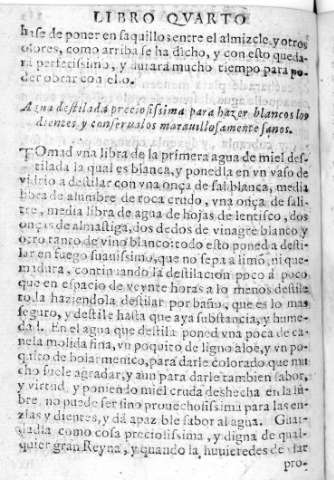 LIBRO QVARTO
hase de poner en saquillos entre el almizcle, y otros
olores, como arriba se ha dicho, y con esto queda-
rà perfectissimo, y durarà mucho tiempo para po-
der obrar con ello.
Agua destilada preciosissima para hazer blancos los
dientes, y conserualos marauillosamente sanos.
TOmad vna libra de la primera agua de miel des-
tilada la qual es blanca, y ponedla en vn vaso de
vidrio a destilar con vna onça de sal blanca, media
libra de alumbre de roca crudo, vna onça de sali-
tre, media libra de agua de hojas de lentisco, dos
onças de almastiga, dos dedos de vinagre blanco y
otro tanto de vino blanco: todo esto poned a desti-
lar en fuego suauissimo, que no sepa a limo, ni que-
madura, continuando la destilacion poco à poco
que en espacio de veynte horas a lo menos destile
todo, haziendola destilar por baño, que es lo mas
seguro, y destile hasta que aya substancia, y hume-
dad. En el agua que destila poned vna poca de ca-
nela molida fina, vn poquito de ligno aloe, y vn po-
quito de bolarmenico, para darle colorado que mu-
cho suele agradar, y aun para darle tambien sabor,
y virtud, y poniendo miel cruda deshecha en la
no puede ser sino prouechosissima para las en-
zias y dientes, y dá apazible sabor al agua. Guar-
dadla como cosa preciosissima, y digna de qual-
quier gran Reyna, y quando la huuieredes de
pro-